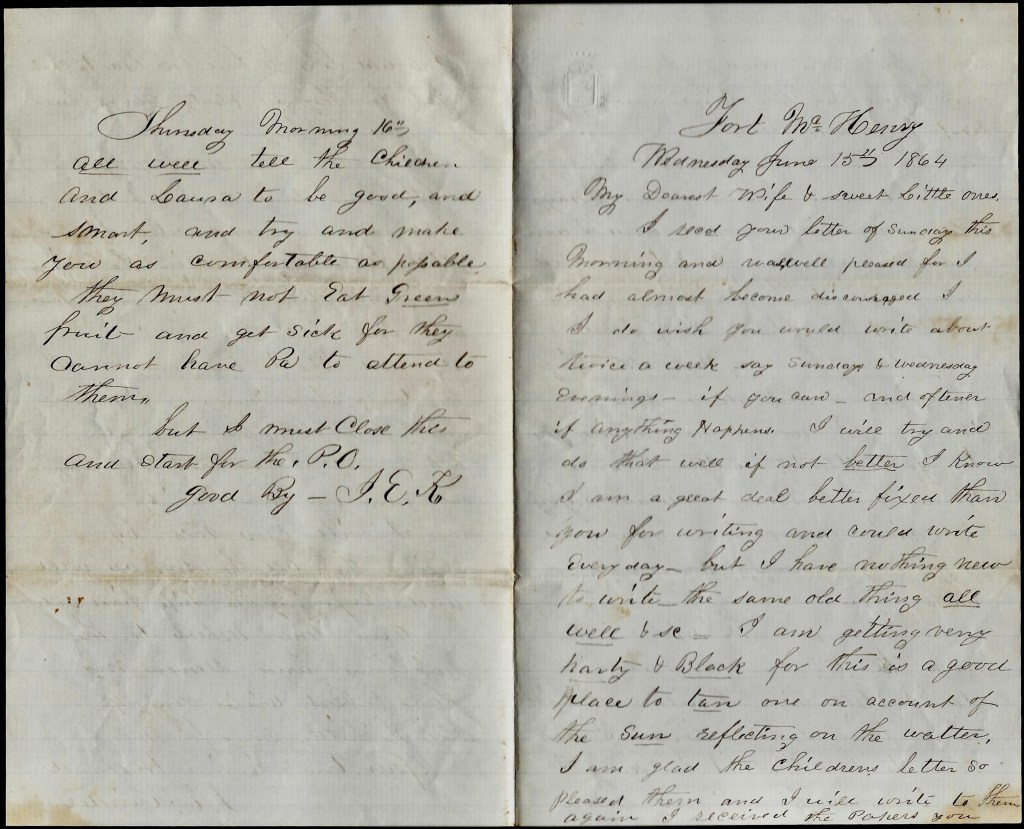 Thursday Morning 16th
all well tell the Children
and Laura to be good, and
smart, and try and make
you as comfortable as possable
they must not Eat Green
fruit and get sick for they
cannot have Pa to attend to
them,,
but I must Close this
and start for the P.O.
good By – J. E. K
Fort Mc Henry
Wednesday June 15th 1864
My Dearest Wife & sweet Little ones.
I recd your letter of Sunday this
Morning and was well pleased for I
had almost become discouraged I
I do wish you would write about
twice a week say Sundays & wednesday
Evenings – if you can – and oftener
if anything Happens. I will try and
do that well if not better I Know
I am a great deal better fixed than
you for writing and could write
Every day – but I have nothing new
to write – the same old thing all
well & sc – I am getting very
harty & Black for this is a good
place to tan one on account of
the sun reflecting on the watter.
I am glad the Childrens letter so
pleased them and I will write to them
again I received the Papers you